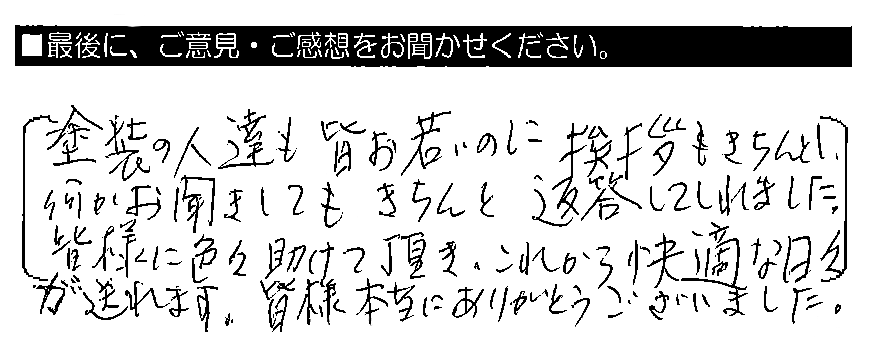 ■最後に、ご意見・ご感想をお聞かせください。
塗装の人達も皆お若いのに挨拶もきちんとし、
何かお聞きしてもきちんと返答してくれました。
皆様に色々助けて頂き、これから快適な日々
が送れます。皆様本当にありがとうございました。